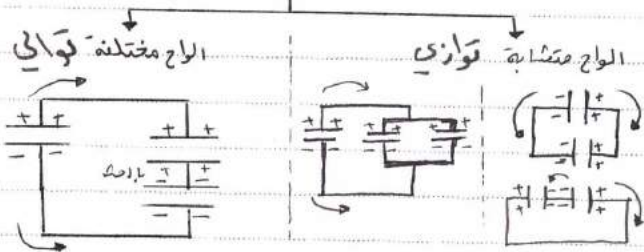 الواح متشابة توازي
الواح مختلفة توالي